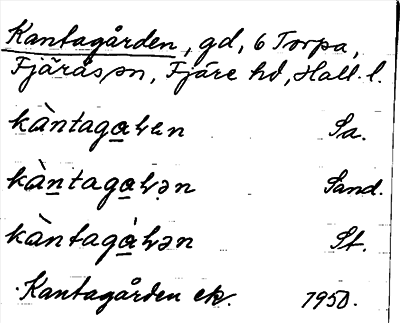 Kantagården, gd, 6 Torpa,
Fjärås sn, Fjäre hd, Hall. l.
kàntaga̲ɥɐn Sa.
kàn̲taga̲ɥ.ən Sand.
kàntagà̲ɥən St.
Kantagården ek. 1950.